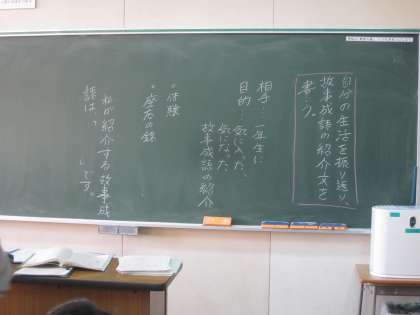 自分の生活を振り返り、
故事成語の紹介文を
書こう。
相手…一年生に
目的…気に入った、
気になった
故事成語の紹介
・体験
・座右の銘
私が紹介する故事成
語は、「　」です。